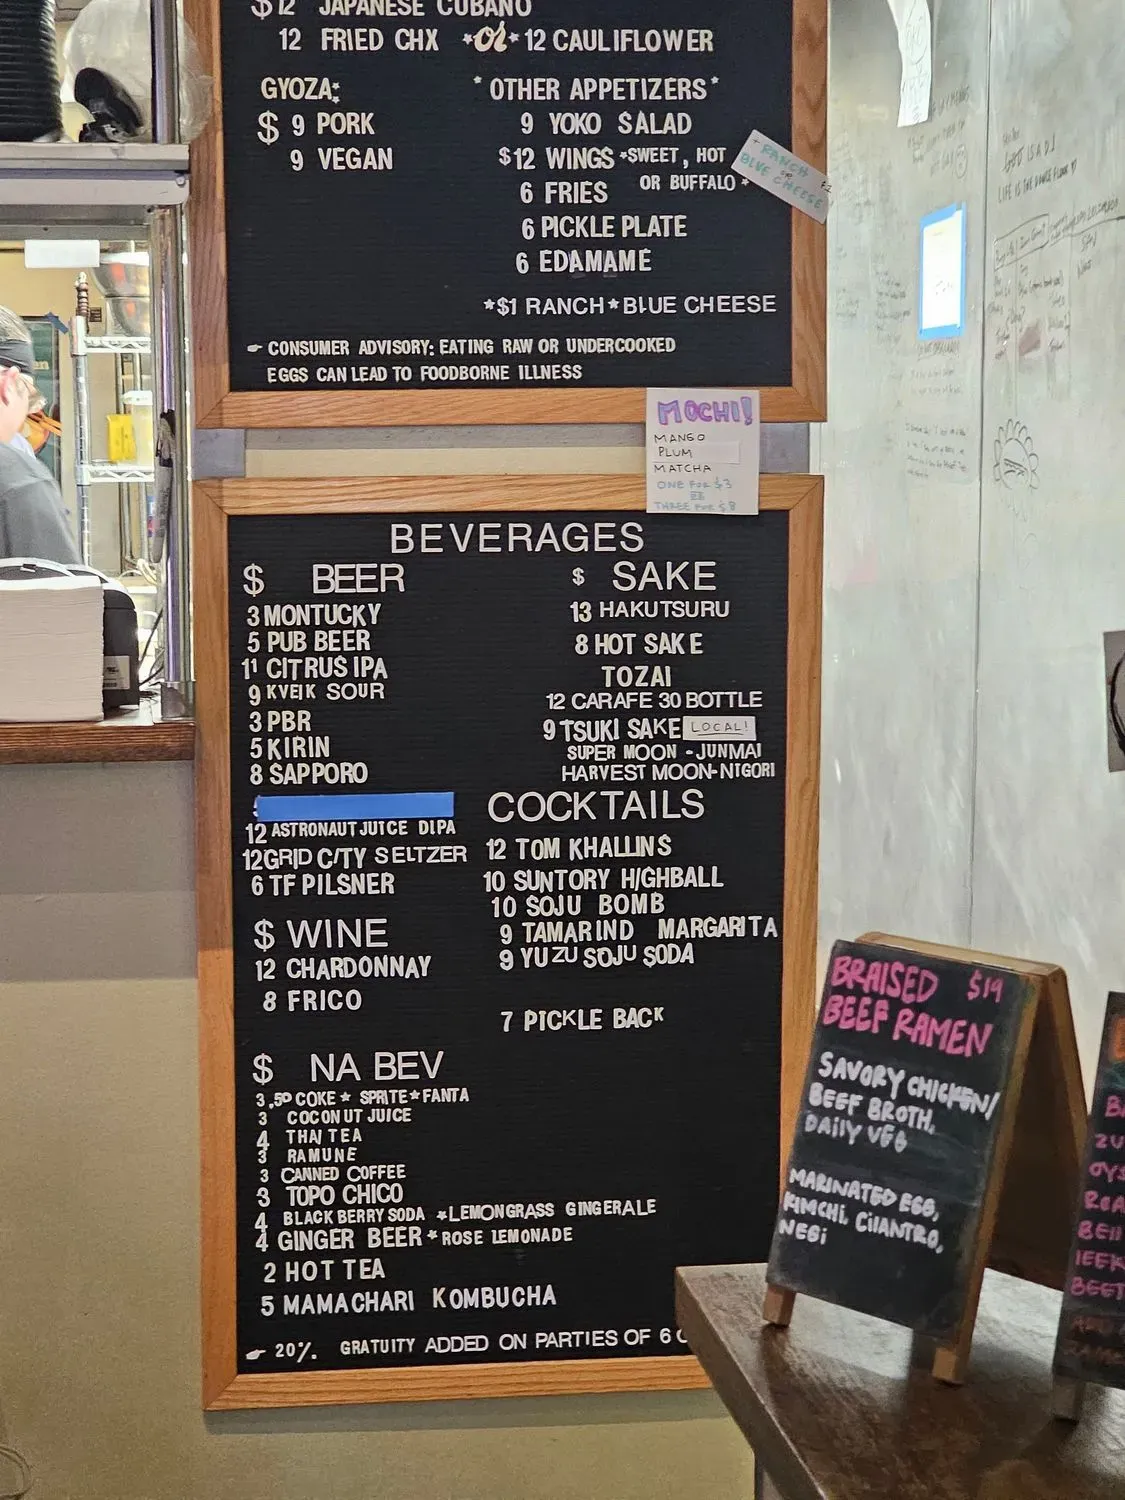 $12 JAPANESE CUBANO
12 FRIED CHX *Or* 12 CAULIFLOWER
GYOZA:
$ 9 PORK
9 VEGAN
* OTHER APPETIZERS *
9 YOKO SALAD
$12 WINGS *SWEET, HOT
OR BUFFALO *
6 FRIES
6 PICKLE PLATE
6 EDAMAME
*$1 RANCH * BLUE CHEESE
+ RANCH
OR
BLUE CHEESE
☛ CONSUMER ADVISORY: EATING RAW OR UNDERCOOKED
EGGS CAN LEAD TO FOODBORNE ILLNESS
MOCHI!
MANGO
PLUM
MATCHA
ONE FOR $3
OR
THREE FOR $8
BEVERAGES
$ BEER
3 MONTUCKY
5 PUB BEER
11 CITRUS IPA
9 KVEIK SOUR
3 PBR
5 KIRIN
8 SAPPORO
12 ASTRONAUT JUICE DIPA
12 GRID CITY SELTZER
6 TF PILSNER
$ WINE
12 CHARDONNAY
8 FRICO
$ NA BEV
3.50 COKE * SPRITE * FANTA
3 COCONUT JUICE
4 THAI TEA
3 RAMUNE
3 CANNED COFFEE
3 TOPO CHICO
4 BLACKBERRY SODA *LEMONGRASS GINGERALE
4 GINGER BEER * ROSE LEMONADE
2 HOT TEA
5 MAMACHARI KOMBUCHA
$ SAKE
13 HAKUTSURU
8 HOT SAKE
TOZAI
12 CARAFE 30 BOTTLE
9 TSUKI SAKE LOCAL!
SUPER MOON - JUNMAI
HARVEST MOON-NIGORI
COCKTAILS
12 TOM KHALLINS
10 SUNTORY HIGHBALL
10 SOJU BOMB
9 TAMARIND MARGARITA
9 YUZU SOJU SODA
7 PICKLE BACK
☛ 20%. GRATUITY ADDED ON PARTIES OF 6
BRAISED $19
BEEF RAMEN
SAVORY CHICKEN/
BEEF BROTH,
DAILY VEG
MARINATED EGG,
KIMCHI, CILANTRO,
NEGI
LIFE IS THE DANCE FLOOR